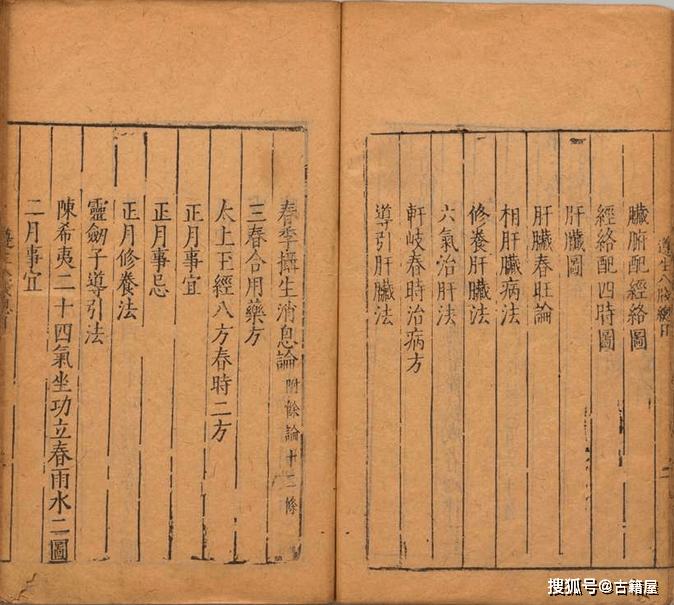 臟腑配經絡圖
經絡配四時圖
肝臟圖
肝臟春旺論
相肝臟病法
修養肝臟法
六氣治肝法
軒岐春時治病方
導引肝臟法
春季攝生消息論 附餘論十二條
三春合用藥方
太上玉經八方春時二方
正月事宜
正月事忌
正月修養法
靈劒子導引法
陳希夷二十四氣坐功立春雨水二圖
二月事宜
搜狐号@古籍屋